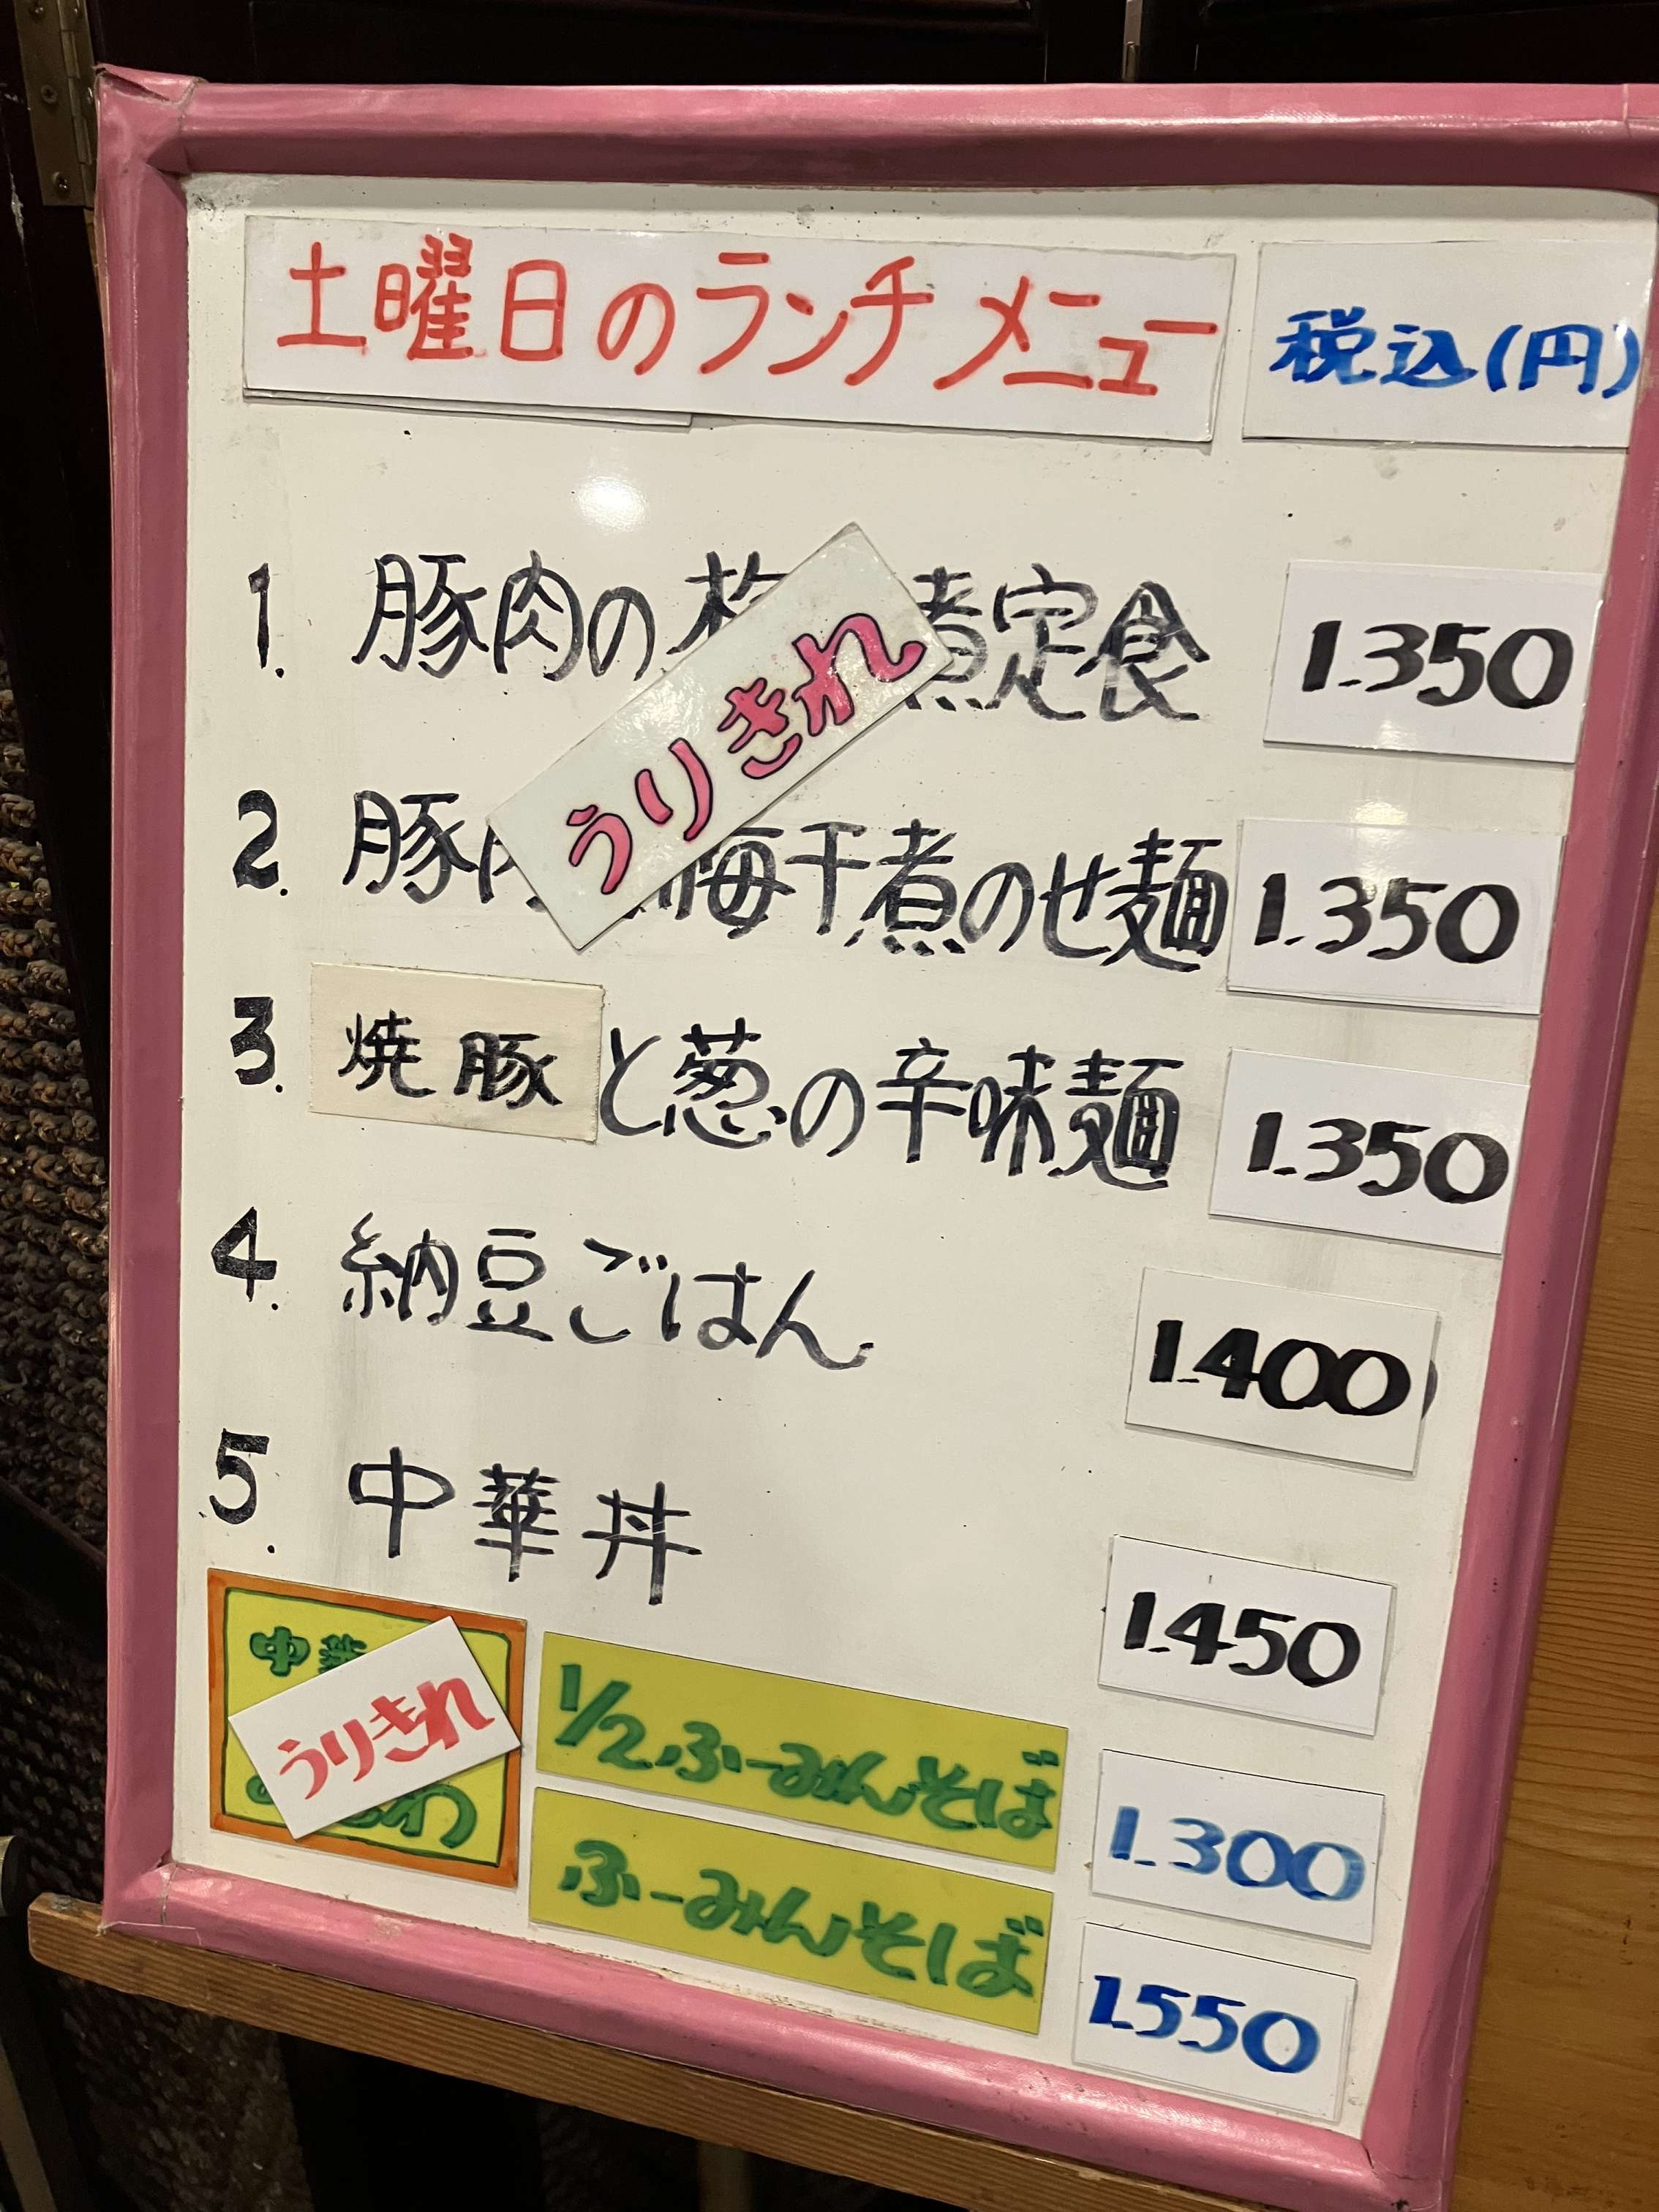 土曜日のランチメニュー 税込(円)
1. 豚肉の 煮定食 1.350
うりきれ
2. 豚肉 梅干煮のせ麺 1.350
3. 焼豚と葱の辛味麺 1.350
4. 納豆ごはん 1.400
5. 中華丼 1.450
中華
うりきれ
1/2ふーみんそば 1.300
ふーみんそば 1.550